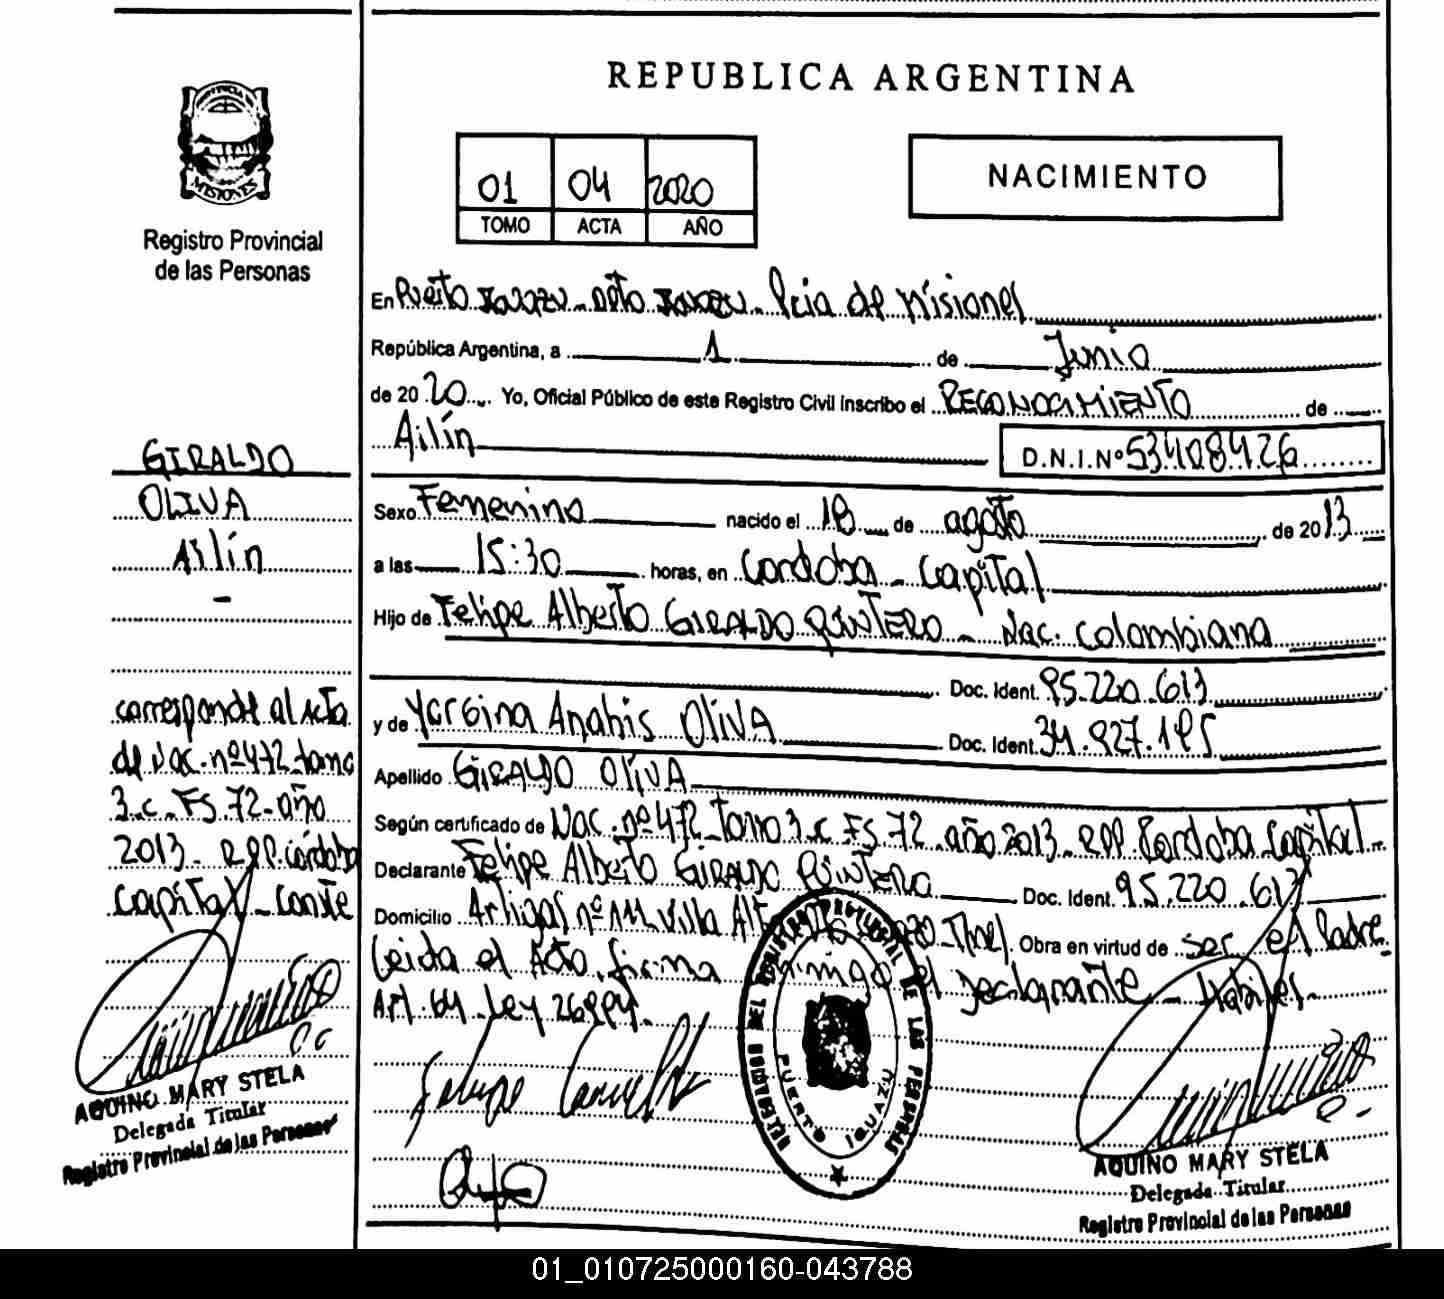 REPUBLICA ARGENTINA
MISIONES
Registro Provincial
de las Personas
01 04 2020
TOMO ACTA AÑO
NACIMIENTO
En Puerto Iguazu - Dpto Iguazu - Pcia de Misiones
República Argentina, a 1 de Junio
de 2020 Yo, Oficial Público de este Registro Civil inscribo el RECONOCIMIENTO de
Ailín D.N.I.Nº 53408426
Sexo Femenino nacido el 18 de agosto de 2013
a las 15:30 horas, en Cordoba - Capital
Hijo de Felipe Alberto GIRALDO QUINTERO - Nac. Colombiana
Doc. Ident. 95.220.613
y de Yorgina Anahis OLIVA Doc. Ident. 34.927.195
Apellido GIRALDO OLIVA
Según certificado de Nac. nº 472 - tomo 3-c Fs 72 - año 2013 - RPP. Cordoba Capital
Declarante Felipe Alberto GIRALDO QUINTERO Doc. Ident. 95.220.613
Domicilio Artigas nº 111 Villa Obra en virtud de ser el Padre
Leida el Acto, firma conmigo el Declarante
Art. 64 Ley 26994.
GIRALDO
OLIVA
Ailín
-
corresponde al acta
de Nac. nº 472 - tomo
3-c - Fs 72 - año
2013 - RPP. Córdoba
Capital - Conste
AQUINO MARY STELA
Delegada Titular
Registro Provincial de las Personas
DEL REGISTRO PROVINCIAL DE LAS PERSONAS
PUERTO IGUAZU
AQUINO MARY STELA
Delegada Titular
Registro Provincial de las Personas
01_010725000160-043788